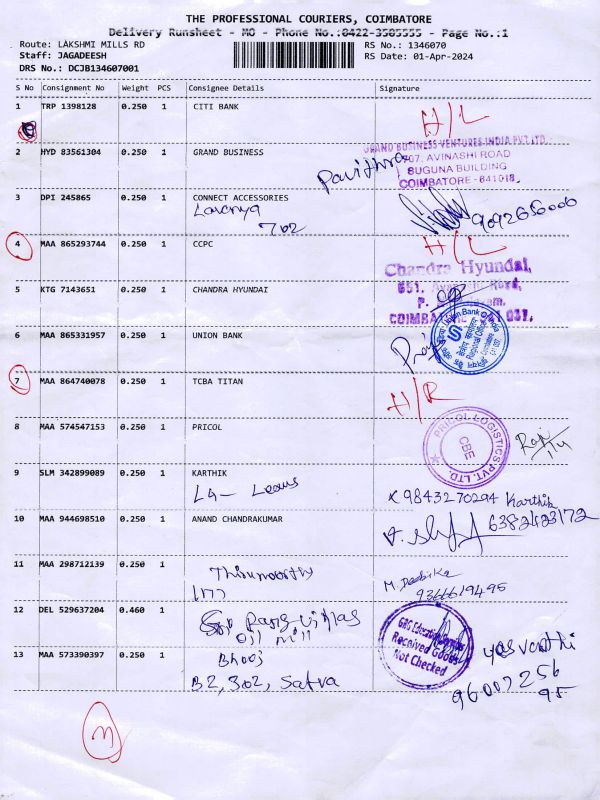 THE PROFESSIONAL COURIERS, COIMBATORE
Delivery Runsheet - MO - Phone No.:0422-3505555 - Page No.:1
Route: LAKSHMI MILLS RD
RS No.: 1346070
Staff: JAGADEESH
RS Date: 01-Apr-2024
DRS No.: DCJB134607001
S No Consignment No Weight PCS Consignee Details Signature
1 TRP 1398128 0.250 1 CITI BANK
H/L
GRAND BUSINESS VENTURES INDIA PVT LTD
2 HYD 83561304 0.250 1 GRAND BUSINESS
Pavithra
707, AVINASHI ROAD
SUGUNA BUILDING
COIMBATORE - 641018
3 DPI 245865 0.250 1 CONNECT ACCESSORIES
Lavanya
702
4 MAA 865293744 0.250 1 CCPC
H/L
Chandra Hyundai,
5 KTG 7143651 0.250 1 CHANDRA HYUNDAI
651,
6 MAA 865331957 0.250 1 UNION BANK
Union Bank of India
Regional Office
7 MAA 864740078 0.250 1 TCBA TITAN
H/R
8 MAA 574547153 1 0.250 PRICOL
PRICOL LOGISTICS PVT. LTD.
CBE
9 SLM 342899089 0.250 1 KARTHIK
9843270294 Karthik
10 MAA 944698510 0.250 1 ANAND CHANDRAKUMAR
6382423172
11 MAA 298712139 0.250 1
Thirumoorthy
9366619495
12 DEL 529637204 0.460 1
Oil mill
Received Goods
Not Checked
13 MAA 573390397 0.250 1
Bhooj
B2, 302, Satva
yasvanthi
96007256
95